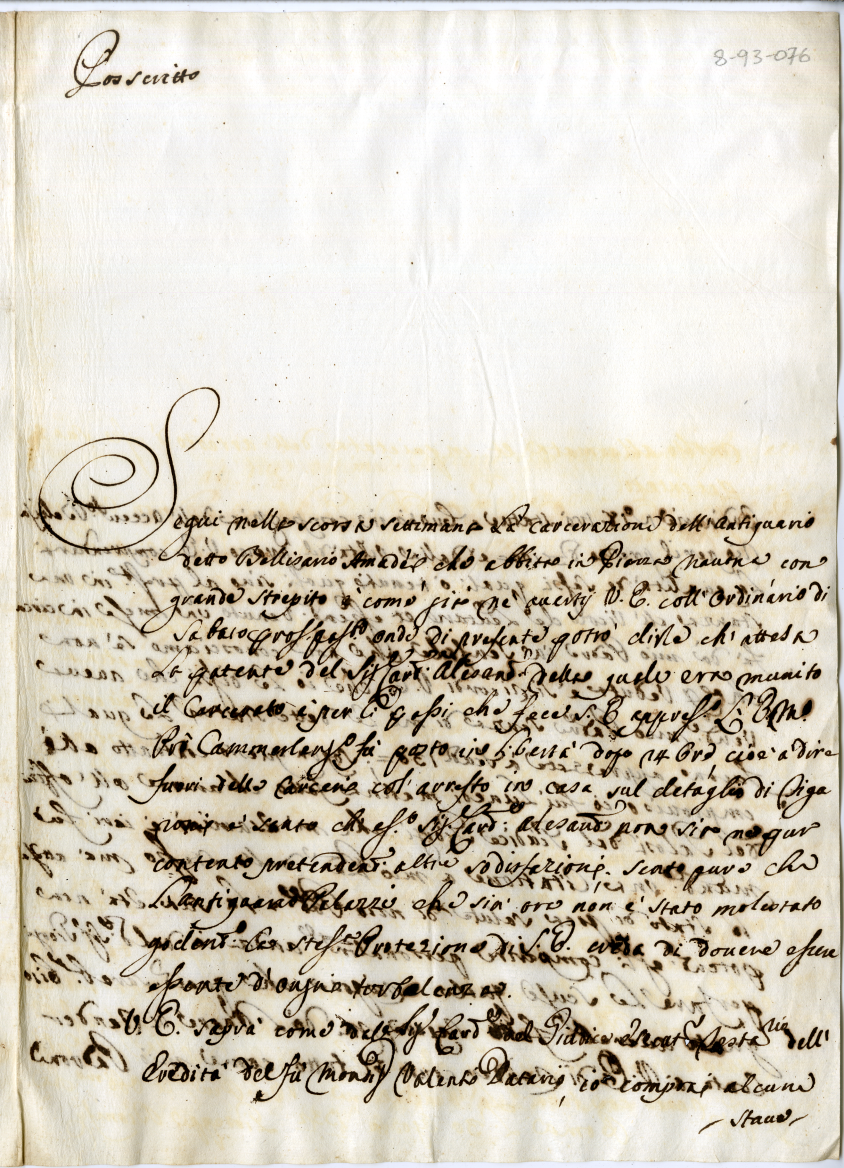 8-93-076
Poscritto
Seguì nella scorsa settimana la carcerazione dell'Antiquario
detto Bellisario Amadei che abbita in Piazza Navona con
grande strepito e come già ne avertij V. E. coll'Ordinario di
Sabato pross. pass.to onde di presente potrò dirle ch'attesa
la patente del Sig.r Card. Alesand.o della quale era munito
il Carcerato e per li passi che fece S. E. appress.o l'E.mo
Cammerlengo fù posto in libertà dopo 24 Ore cioè a dire
fuori delle Carceri col'arresto in casa sul detaglio di
e sento che es.o Sig.r Card. Alesand.o non sia ne pur
contento pretendend.o altre sodisfazioni. Sento pure che
l'Antiquario Palazzi che sin'ora non è stato molestato
godend.o la stess.a Protezione di S. E. creda di dovere essere
essente d'ogni torbolenza.
V. E. saprà come il Sig.r Card.e del Giudice Esecut.e Testa.rio dell'
Eredità del fù Mons.r Valenti Datario, io comprai alcune
Statue